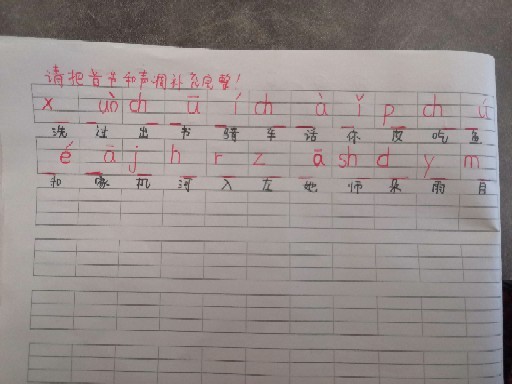 请把音节和声调补充完整！
x uò ch ū í ch à ǐ p ch ú
洗 过 出 书 骑 车 话 你 皮 吃 鱼
é ā j h r z ā sh d y m
和 家 机 河 入 左 她 师 朵 雨 目